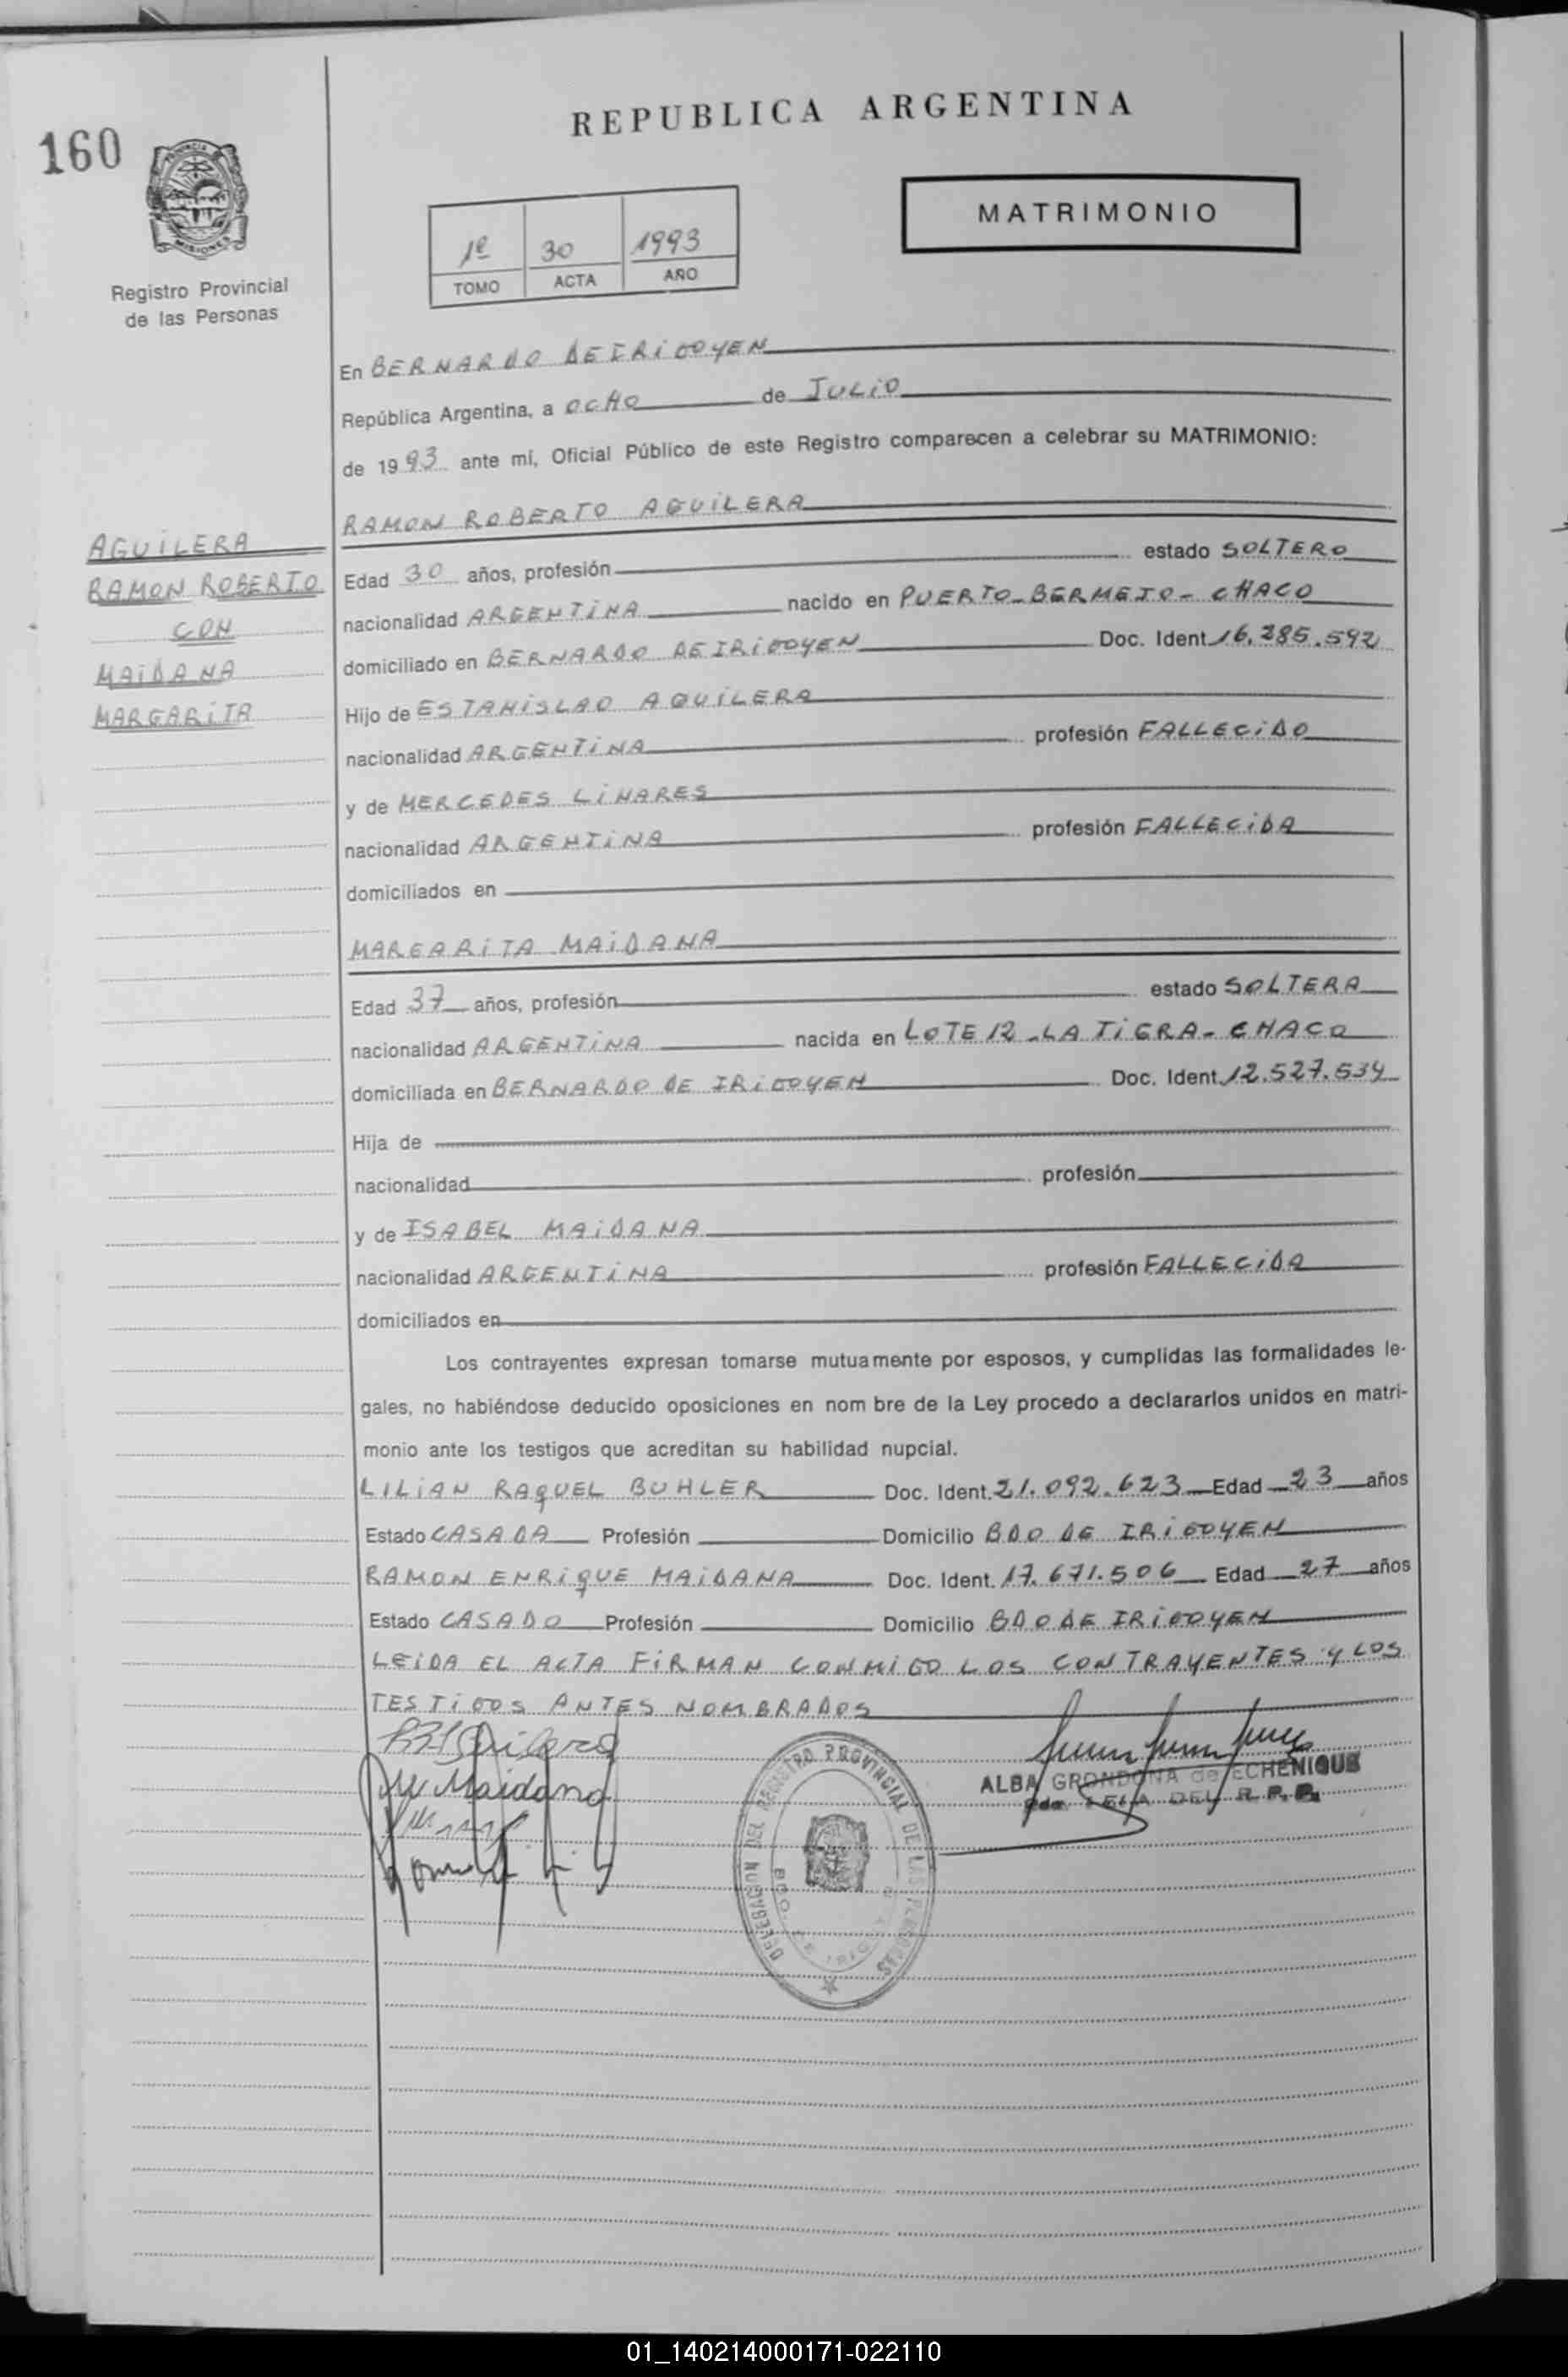 160
REPUBLICA ARGENTINA
MATRIMONIO
1º 30 1993
TOMO ACTA AÑO
PROVINCIA
MISIONES
Registro Provincial
de las Personas
En BERNARDO DE IRIGOYEN
República Argentina, a OCHO de JULIO
de 1993 ante mí, Oficial Público de este Registro comparecen a celebrar su MATRIMONIO:
AGUILERA
RAMON ROBERTO
CON
MAIDANA
MARGARITA
RAMON ROBERTO AGUILERA
Edad 30 años, profesión estado SOLTERO
nacionalidad ARGENTINA nacido en PUERTO-BERMEJO- CHACO
domiciliado en BERNARDO DE IRIGOYEN Doc. Ident. 16.285.592
Hijo de ESTANISLAO AGUILERA
nacionalidad ARGENTINA profesión FALLECIDO
y de MERCEDES LINARES
nacionalidad ARGENTINA profesión FALLECIDA
domiciliados en
MARGARITA MAIDANA
Edad 37 años, profesión estado SOLTERA
nacionalidad ARGENTINA nacida en LOTE 12-LA TIGRA- CHACO
domiciliada en BERNARDO DE IRIGOYEN Doc. Ident. 12.527.534
Hija de
nacionalidad profesión
y de ISABEL MAIDANA
nacionalidad ARGENTINA profesión FALLECIDA
domiciliados en
Los contrayentes expresan tomarse mutuamente por esposos, y cumplidas las formalidades le-
gales, no habiéndose deducido oposiciones en nom bre de la Ley procedo a declararlos unidos en matri-
monio ante los testigos que acreditan su habilidad nupcial.
LILIAN RAQUEL BUHLER Doc. Ident. 21.092.623 Edad 23 años
Estado CASADA Profesión Domicilio BDO DE IRIGOYEN
RAMON ENRIQUE MAIDANA Doc. Ident. 17.671.506 Edad 27 años
Estado CASADO Profesión Domicilio BDO DE IRIGOYEN
LEIDA EL ACTA FIRMAN CONMIGO LOS CONTRAYENTES Y LOS
TESTIGOS ANTES NOMBRADOS
M Maidana
ALBA GRONDONA de ECHENIQUE
DEL R. P. P.
DELEGACION DEL REGISTRO PROVINCIAL DE LAS PERSONAS
01_140214000171-022110